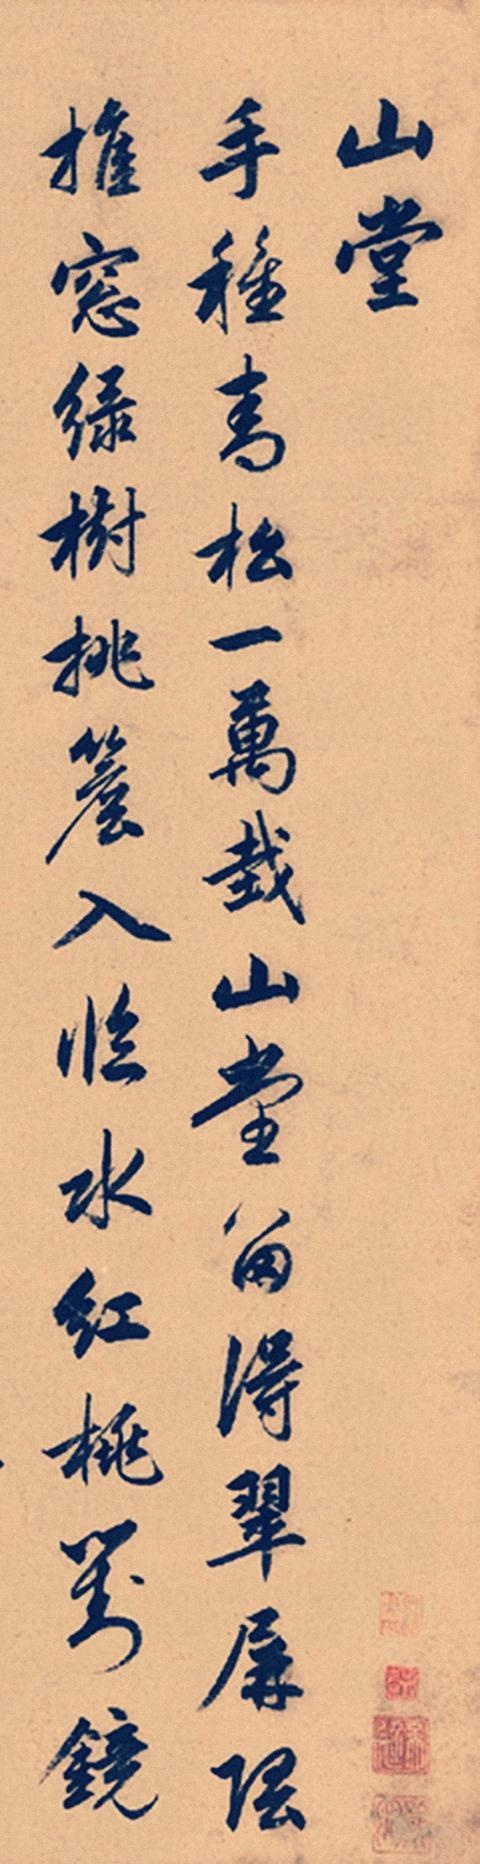 山堂
手種青松一萬栽山堂留得翠屏隈
推窓綠樹挑簷入臨水紅桃對鏡